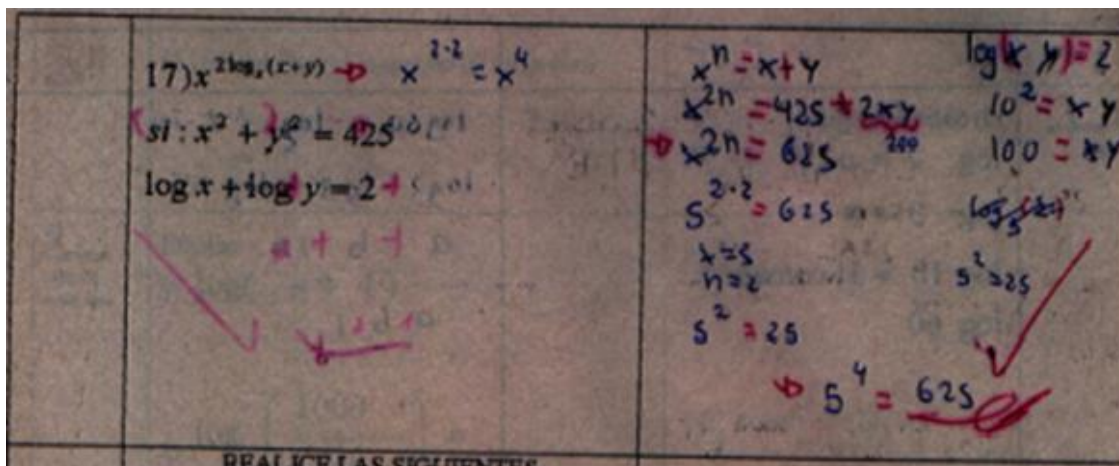 17) x^{2log_x(x+y)} → x^{2·2} = x^4
si : x² + y² = 425
log x + log y = 2
a + b +
x^n = x + y
x^{2n} = 425 + 2xy
200
→ x^{2n} = 625
5^{2·2} = 625
x = 5
n = 2
5² = 25
→ 5^4 = 625
log(x y) = 2
10² = x y
100 = xy
5² = 25
REALICE LAS SIGUIENTES